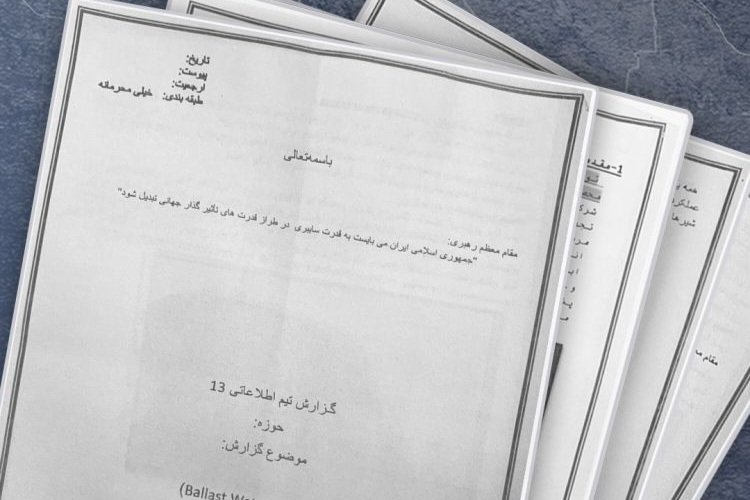 تاریخ:
پیوست:
ارجعیت:
طبقه بندی: خیلی محرمانه
باسمه‌تعالی
مقام معظم رهبری:
"جمهوری اسلامی ایران می بایست به قدرت سایبری در طراز قدرت های تأثیر گذار جهانی تبدیل شود"
گزارش تیم اطلاعاتی 13
حوزه:
موضوع گزارش:
(Ballast
1-مقد
شرک
همه
عملکر
شیرها
مقام مـ